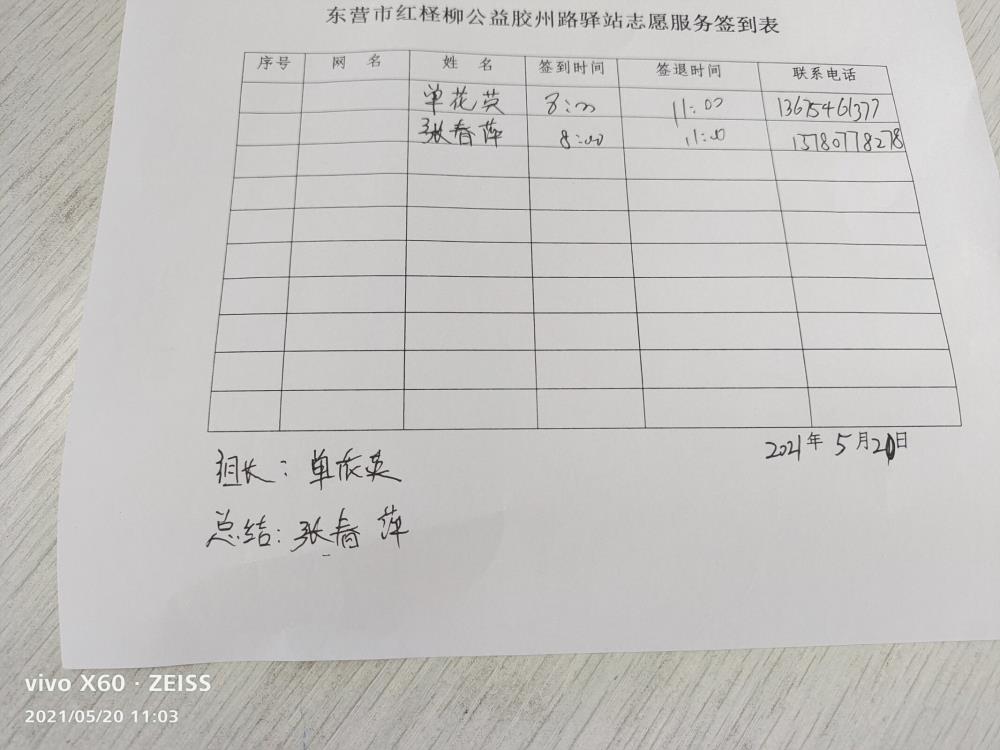 东营市红柽柳公益胶州路驿站志愿服务签到表
序号 网名 姓名 签到时间 签退时间 联系电话
单花英 8:00 11:00 13675461377
张春萍 8:00 11:00 15780778278
2021年5月20日
组长:单花英
总结:张春萍
vivo X60 · ZEISS
2021/05/20 11:03